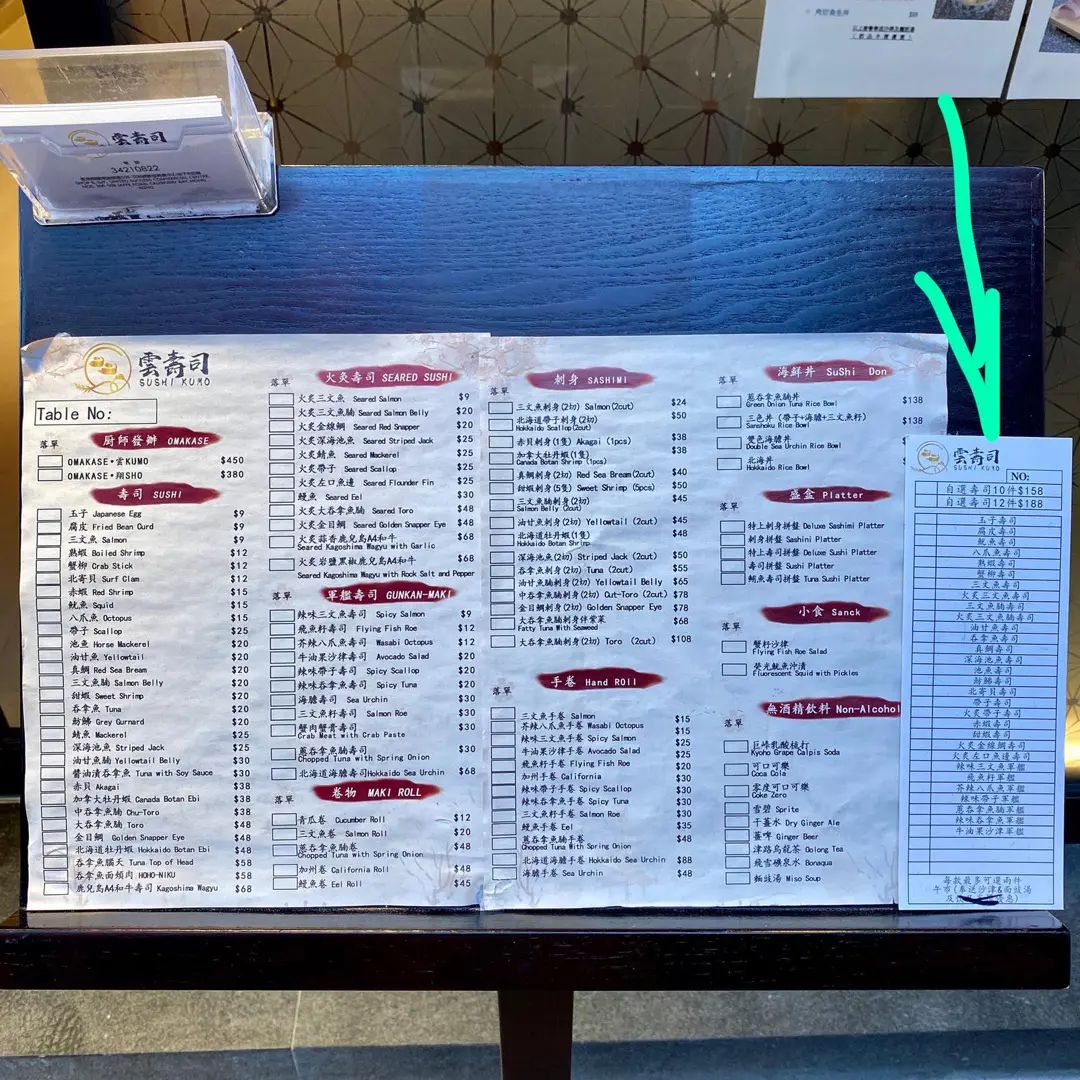 雲壽司
34210822
雲壽司
SUSHI KUMO
Table No:
落單
廚師發辦 OMAKASE
OMAKASE•雲KUMO $450
OMAKASE•翔SHO $380
壽司 SUSHI
玉子 Japanese Egg $9
腐皮 Fried Bean Curd $9
三文魚 Salmon $9
熟蝦 Boiled Shrimp $12
蟹柳 Crab Stick $12
北寄貝 Surf Clam $12
赤蝦 Red Shrimp $15
魷魚 Squid $15
八爪魚 Octopus $15
帶子 Scallop $20
池魚 Horse Mackerel $20
油甘魚 Yellowtail $20
真鯛 Red Sea Bream $20
三文魚腩 Salmon Belly $20
甜蝦 Sweet Shrimp $20
吞拿魚 Tuna $20
魴鮄 Grey Gurnard $20
鯖魚 Mackerel $25
深海池魚 Striped Jack $25
油甘魚腩 Yellowtail Belly $30
醬油漬吞拿魚 Tuna with Soy Sauce $30
赤貝 Akagai $38
加拿大牡丹蝦 Canada Botan Ebi $38
中吞拿魚腩 Chu-Toro $38
大吞拿魚腩 Toro $48
金目鯛 Golden Snapper Eye $48
北海道牡丹蝦 Hokkaido Botan Ebi $48
吞拿魚腦天 Tuna Top of Head $58
吞拿魚面頰肉 HOHO-NIKU $58
鹿兒島A4和牛壽司 Kagoshima Wagyu $68
落單
火炙壽司 SEARED SUSHI
火炙三文魚 Seared Salmon $9
火炙三文魚腩 Seared Salmon Belly $20
火炙金線鯛 Seared Red Snapper $20
火炙深海池魚 Seared Striped Jack $25
火炙鯖魚 Seared Mackerel $25
火炙帶子 Seared Scallop $25
火炙左口魚邊 Seared Flounder Fin $25
鰻魚 Seared Eel $30
火炙大吞拿魚腩 Seared Toro $48
火炙金目鯛 Seared Golden Snapper Eye $48
火炙蒜香鹿兒島A4和牛 $68
Seared Kagoshima Wagyu with Garlic
火炙岩鹽黑椒鹿兒島A4和牛 $68
Seared Kagoshima Wagyu with Rock Salt and Pepper
落單
軍艦壽司 GUNKAN-MAKI
辣味三文魚壽司 Spicy Salmon $9
飛魚籽壽司 Flying Fish Roe $12
芥辣八爪魚壽司 Wasabi Octopus $12
牛油果沙律壽司 Avocado Salad $20
辣味帶子壽司 Spicy Scallop $20
辣味吞拿魚壽司 Spicy Tuna $20
海膽壽司 Sea Urchin $30
三文魚籽壽司 Salmon Roe $30
蟹肉蟹膏壽司 $30
Crab Meat with Crab Paste
蔥吞拿魚腩壽司 $30
Chopped Tuna with Spring Onion
北海道海膽壽司Hokkaido Sea Urchin $68
落單
卷物 MAKI ROLL
青瓜卷 Cucumber Roll $12
三文魚卷 Salmon Roll $20
蔥吞拿魚腩卷 $48
Chopped Tuna with Spring Onion
加州卷 California Roll $48
鰻魚卷 Eel Roll $45
落單
刺身 SASHIMI
三文魚刺身(2切) Salmon(2cut) $24
北海道帶子刺身(2切) $50
Hokkaido Scallop(2cut)
赤貝刺身(1隻) Akagai (1pcs) $38
加拿大牡丹蝦(1隻) $38
Canada Botan Shrimp (1pcs)
真鯛刺身(2切) Red Sea Bream(2cut) $40
甜蝦刺身(5隻) Sweet Shrimp (5pcs) $50
三文魚腩刺身(2切) $45
Salmon Belly (2cut)
油甘魚刺身(2切) Yellowtail (2cut) $45
北海道牡丹蝦(1隻) $48
Hokkaido Botan Shrimp
深海池魚(2切) Striped Jack (2cut) $50
吞拿魚刺身(2切) Tuna (2cut) $55
油甘魚腩刺身(2切) Yellowtail Belly $65
中吞拿魚腩刺身(2切) Cut-Toro (2cut) $78
金目鯛刺身(2切) Golden Snapper Eye $78
大吞拿魚腩刺身伴紫菜 $68
Fatty Tuna With Seaweed
大吞拿魚腩刺身(2切) Toro (2cut) $108
落單
手卷 Hand Roll
三文魚手卷 Salmon $15
芥辣八爪魚手卷 Wasabi Octopus $15
辣味三文魚手卷 Spicy Salmon $25
牛油果沙律手卷 Avocado Salad $25
飛魚籽手卷 Flying Fish Roe $20
加州手卷 California $30
辣味帶子手卷 Spicy Scallop $30
辣味吞拿魚手卷 Spicy Tuna $30
三文魚籽手卷 Salmon Roe $30
鰻魚手卷 Eel $35
蔥吞拿魚腩手卷 $48
Chopped Tuna With Spring Onion
北海道海膽手卷 Hokkaido Sea Urchin $88
海膽手卷 Sea Urchin $48
落單
海鮮丼 SuShi Don
蔥吞拿魚腩丼 $138
Green Onion Tuna Rice Bowl
三色丼 (帶子+海膽+三文魚籽) $138
Sanshoku Rice Bowl
雙色海膽丼
Double Sea Urchin Rice Bowl
北海丼
Hokkaido Rice Bowl
落單
盛盒 Platter
特上刺身拼盤 Deluxe Sashimi Platter
刺身拼盤 Sashini Platter
特上壽司拼盤 Deluxe Sushi Platter
壽司拼盤 Sushi Platter
鮪魚壽司拼盤 Tuna Sushi Platter
落單
小食 Sanck
蟹籽沙律
Flying Fish Roe Salad
熒光魷魚沖漬
Fluorescent Squid with Pickles
落單
無酒精飲料 Non-Alcohol
巨峰乳酸梳打
Kyoho Grape Calpis Soda
可口可樂
Coca Cola
零度可口可樂
Coke Zero
雪碧 Sprite
干薑水 Dry Ginger Ale
薑啤 Ginger Beer
津路烏龍茶 Oolong Tea
飛雪礦泉水 Bonaqua
麵豉湯 Miso Soup
雲壽司
SUSHI KUMO
NO:
自選壽司10件$158
自選壽司12件$188
玉子壽司
腐皮壽司
魷魚壽司
八爪魚壽司
熟蝦壽司
蟹柳壽司
三文魚壽司
火炙三文魚壽司
三文魚腩壽司
火炙三文魚腩壽司
油甘魚壽司
吞拿魚壽司
真鯛壽司
深海池魚壽司
池魚壽司
魴鮄壽司
北寄貝壽司
帶子壽司
火炙帶子壽司
赤蝦壽司
甜蝦壽司
火炙金線鯛壽司
火炙左口魚邊壽司
辣味三文魚軍艦
飛魚籽軍艦
芥辣八爪魚軍艦
辣味帶子軍艦
蔥吞拿魚腩軍艦
辣味吞拿魚軍艦
牛油果沙津軍艦
每款最多可選兩件
午市(奉送沙津&面豉湯